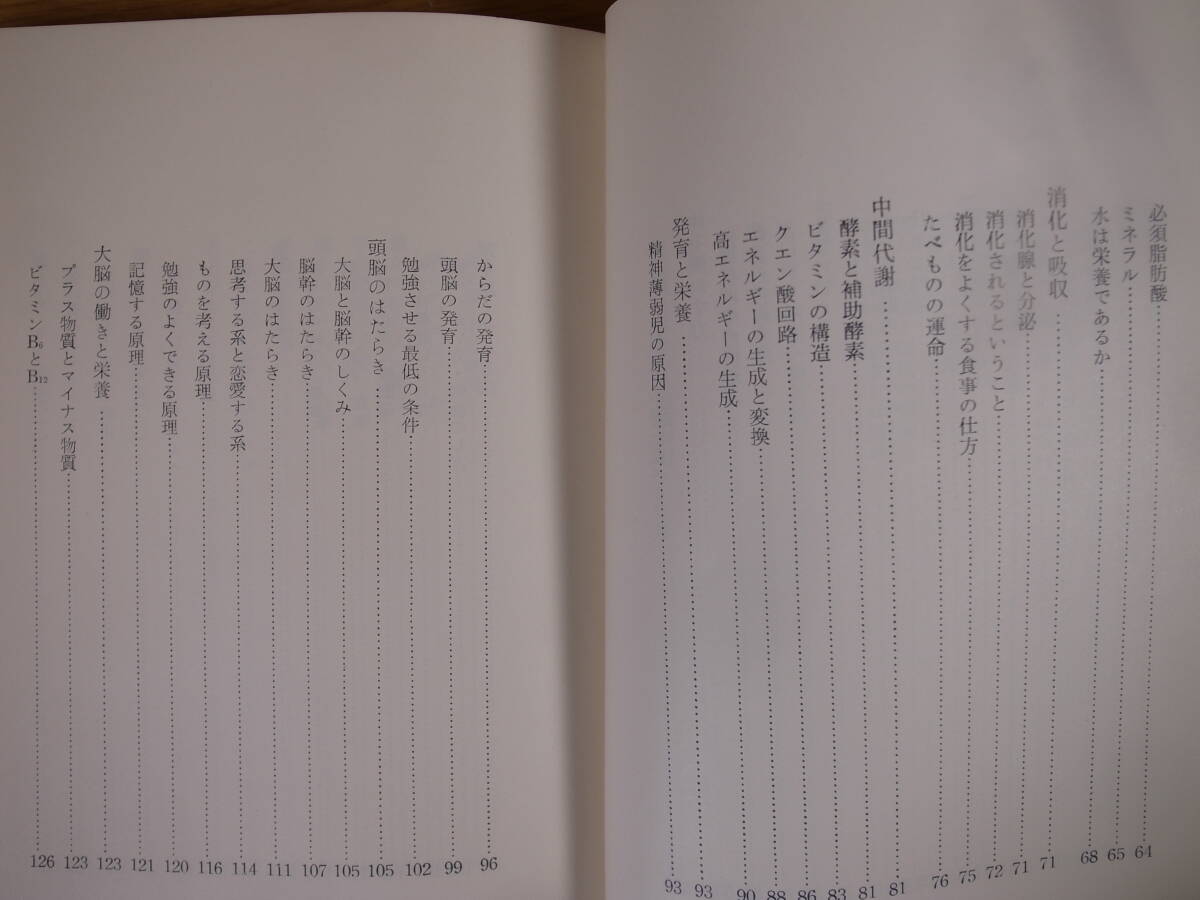 必須脂肪酸……64
ミネラル……65
水は栄養であるか……68
消化と吸収……71
消化腺と分泌……71
消化されるということ……72
消化をよくする食事の仕方……75
たべものの運命……76
中間代謝……81
酵素と補助酵素……81
ビタミンの構造……83
クエン酸回路……86
エネルギーの生成と変換……88
高エネルギーの生成……90
発育と栄養……93
精神薄弱児の原因……93
からだの発育……96
頭脳の発育……99
勉強させる最低の条件……102
頭脳のはたらき……105
大脳と脳幹のしくみ……105
脳幹のはたらき……107
大脳のはたらき……111
思考する系と恋愛する系……114
ものを考える原理……116
勉強のよくできる原理……120
記憶する原理……121
大脳の働きと栄養……123
プラス物質とマイナス物質……123
ビタミンB₆とB₁₂……126